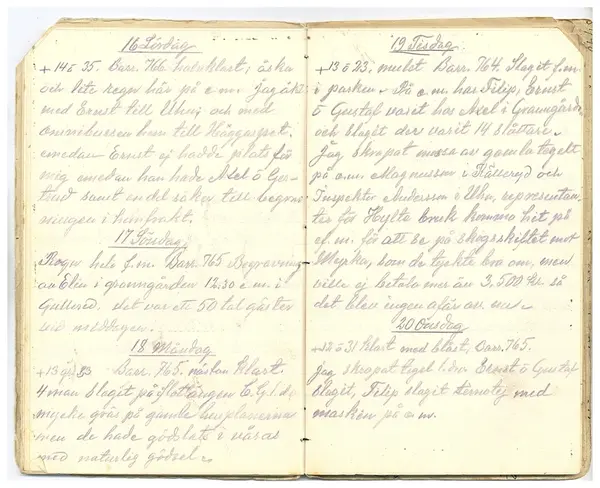 16 Lördag
+14 å 35. Barr. 766 halvklart, åska
och lite regn här på e.m. Jag åkt
med Ernst till Uhn, och med
omnibussen hem till Häggarpet.
emedan Ernst ej hadde plats för
mig emedan han hade Axel å Ger-
trud samt en del saker till begrav
ningen i hemfrakt.
17 Söndag
Regn hela f.m. Barr. 765 Begravning
av Elin i granngården 12.30 e.m. i
Gullered. det var ett 50 tal gäster
vid middagen.
18 Måndag
+13 å 23 Barr. 765. nästan klart.
4 man slaget på Slottängen C.G.l.d.
mycke gräs på gamla
men de hade gödslats i våras
med naturlig gödsel.
19 Tisdag
+13 å 23. mulet Barr. 764. Slaget f.m.
i parken. På e.m. har Filip, Ernst
å Gustaf varet hos Axel i Granngården
och slaget der varit 14 slåttare.
Jag skrapat massa av gamla tegelt
på e.m. Magnusson i Källeryd och
Inspektor Andersson i Uhn, representan-
ter för Hylte bruk komma hit på
e.f.m. för att se på skogsskiftet mot
Myrka, som de tyckte bra om, men
ville ej betala mer än 3,500 Kr. så
det blev ingen afär av. nu
20 Onsdag
+12 å 31 klart med blåst, Barr. 765.
Jag skrapat tegel i dag Ernst å Gustaf
slaget, Filip slaget med
maskin på e.m.